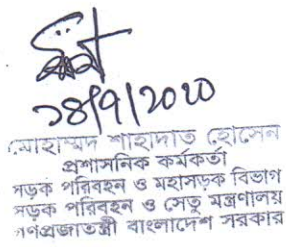 ১৪/৭/২০২০
মোহাম্মদ শাহাদাত হোসেন
প্রশাসনিক কর্মকর্তা
সড়ক পরিবহন ও মহাসড়ক বিভাগ
সড়ক পরিবহন ও সেতু মন্ত্রণালয়
গণপ্রজাতন্ত্রী বাংলাদেশ সরকার